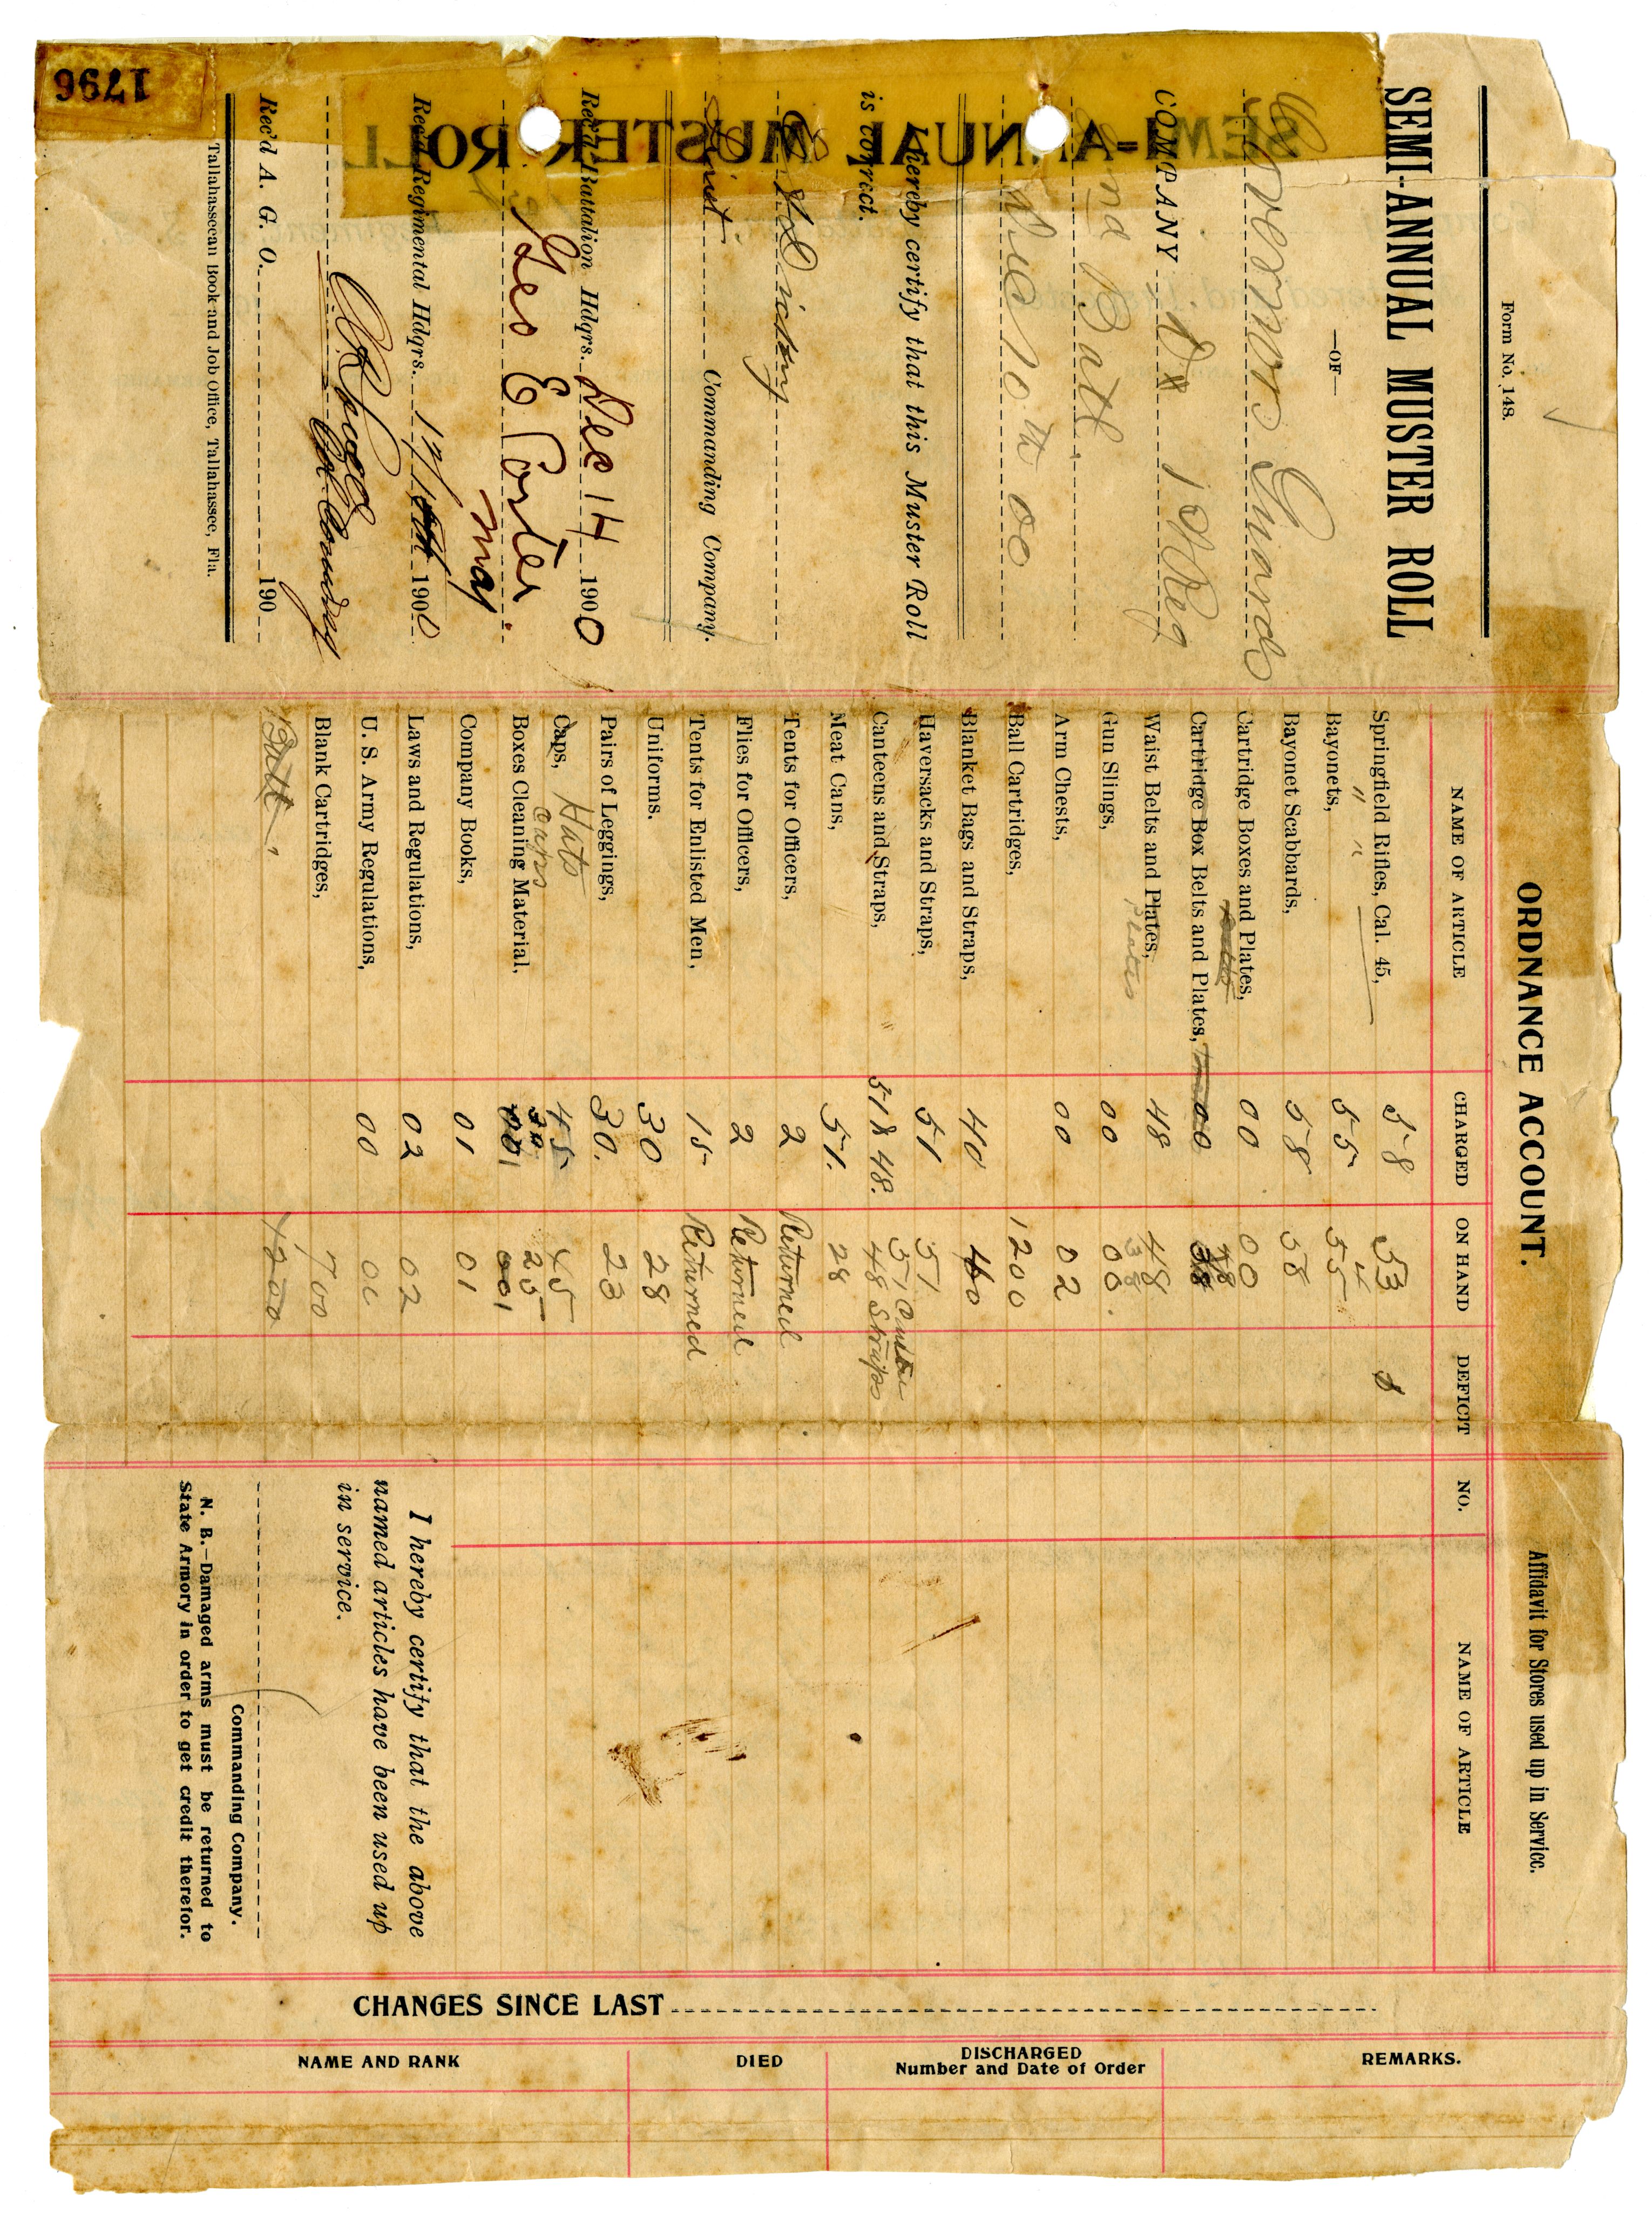 Form No. 148.
SEMI-ANNUAL MUSTER ROLL
—OF—
Governors Guards
COMPANY D 1st Reg
2nd Batt.
Dec 10th 00
I hereby certify that this Muster Roll
is correct.
Commanding Company.
Rec'd Battalion Hdqrs. Dec 14 1900
Geo E Porter
Maj.
Rec'd Regimental Hdqrs. 1900
Rec'd A. G. O. 190
Tallahasseean Book and Job Office, Tallahassee, Fla.
1796
SEMI-ANNUAL MUSTER ROLL
ORDNANCE ACCOUNT.
NAME OF ARTICLE CHARGED ON HAND DEFICIT
Springfield Rifles, Cal. 45, 58 53
" " 4
Bayonets, 55 55
Bayonet Scabbards, 58 58
Cartridge Boxes and Plates, 00 00
Cartridge Box Belts and Plates, 00 38
Waist Belts and Plates, 48 48
Plates 38
Gun Slings, 00 00.
Arm Chests, 00 02
Ball Cartridges, 1200
Blanket Bags and Straps, 40 40
Haversacks and Straps, 51 51
Canteens and Straps, 51 & 48. 51 48 Straps
Meat Cans, 51. 28
Tents for Officers, 2 Returned
Flies for Officers, 2 Returned
Tents for Enlisted Men, 15 Returned
Uniforms. 30 28
Pairs of Leggings, 30. 23
Caps, Hats 45 45
caps 30 25
Boxes Cleaning Material, 001 001
Company Books, 01 01
Laws and Regulations, 02 02
U. S. Army Regulations, 00 00
Blank Cartridges, 700
Ball 1200
Affidavit for Stores used up in Service.
NO. NAME OF ARTICLE
I hereby certify that the above
named articles have been used up
in service.
Commanding Company.
N. B.—Damaged arms must be returned to
State Armory in order to get credit therefor.
CHANGES SINCE LAST
NAME AND RANK DIED DISCHARGED REMARKS.
Number and Date of Order